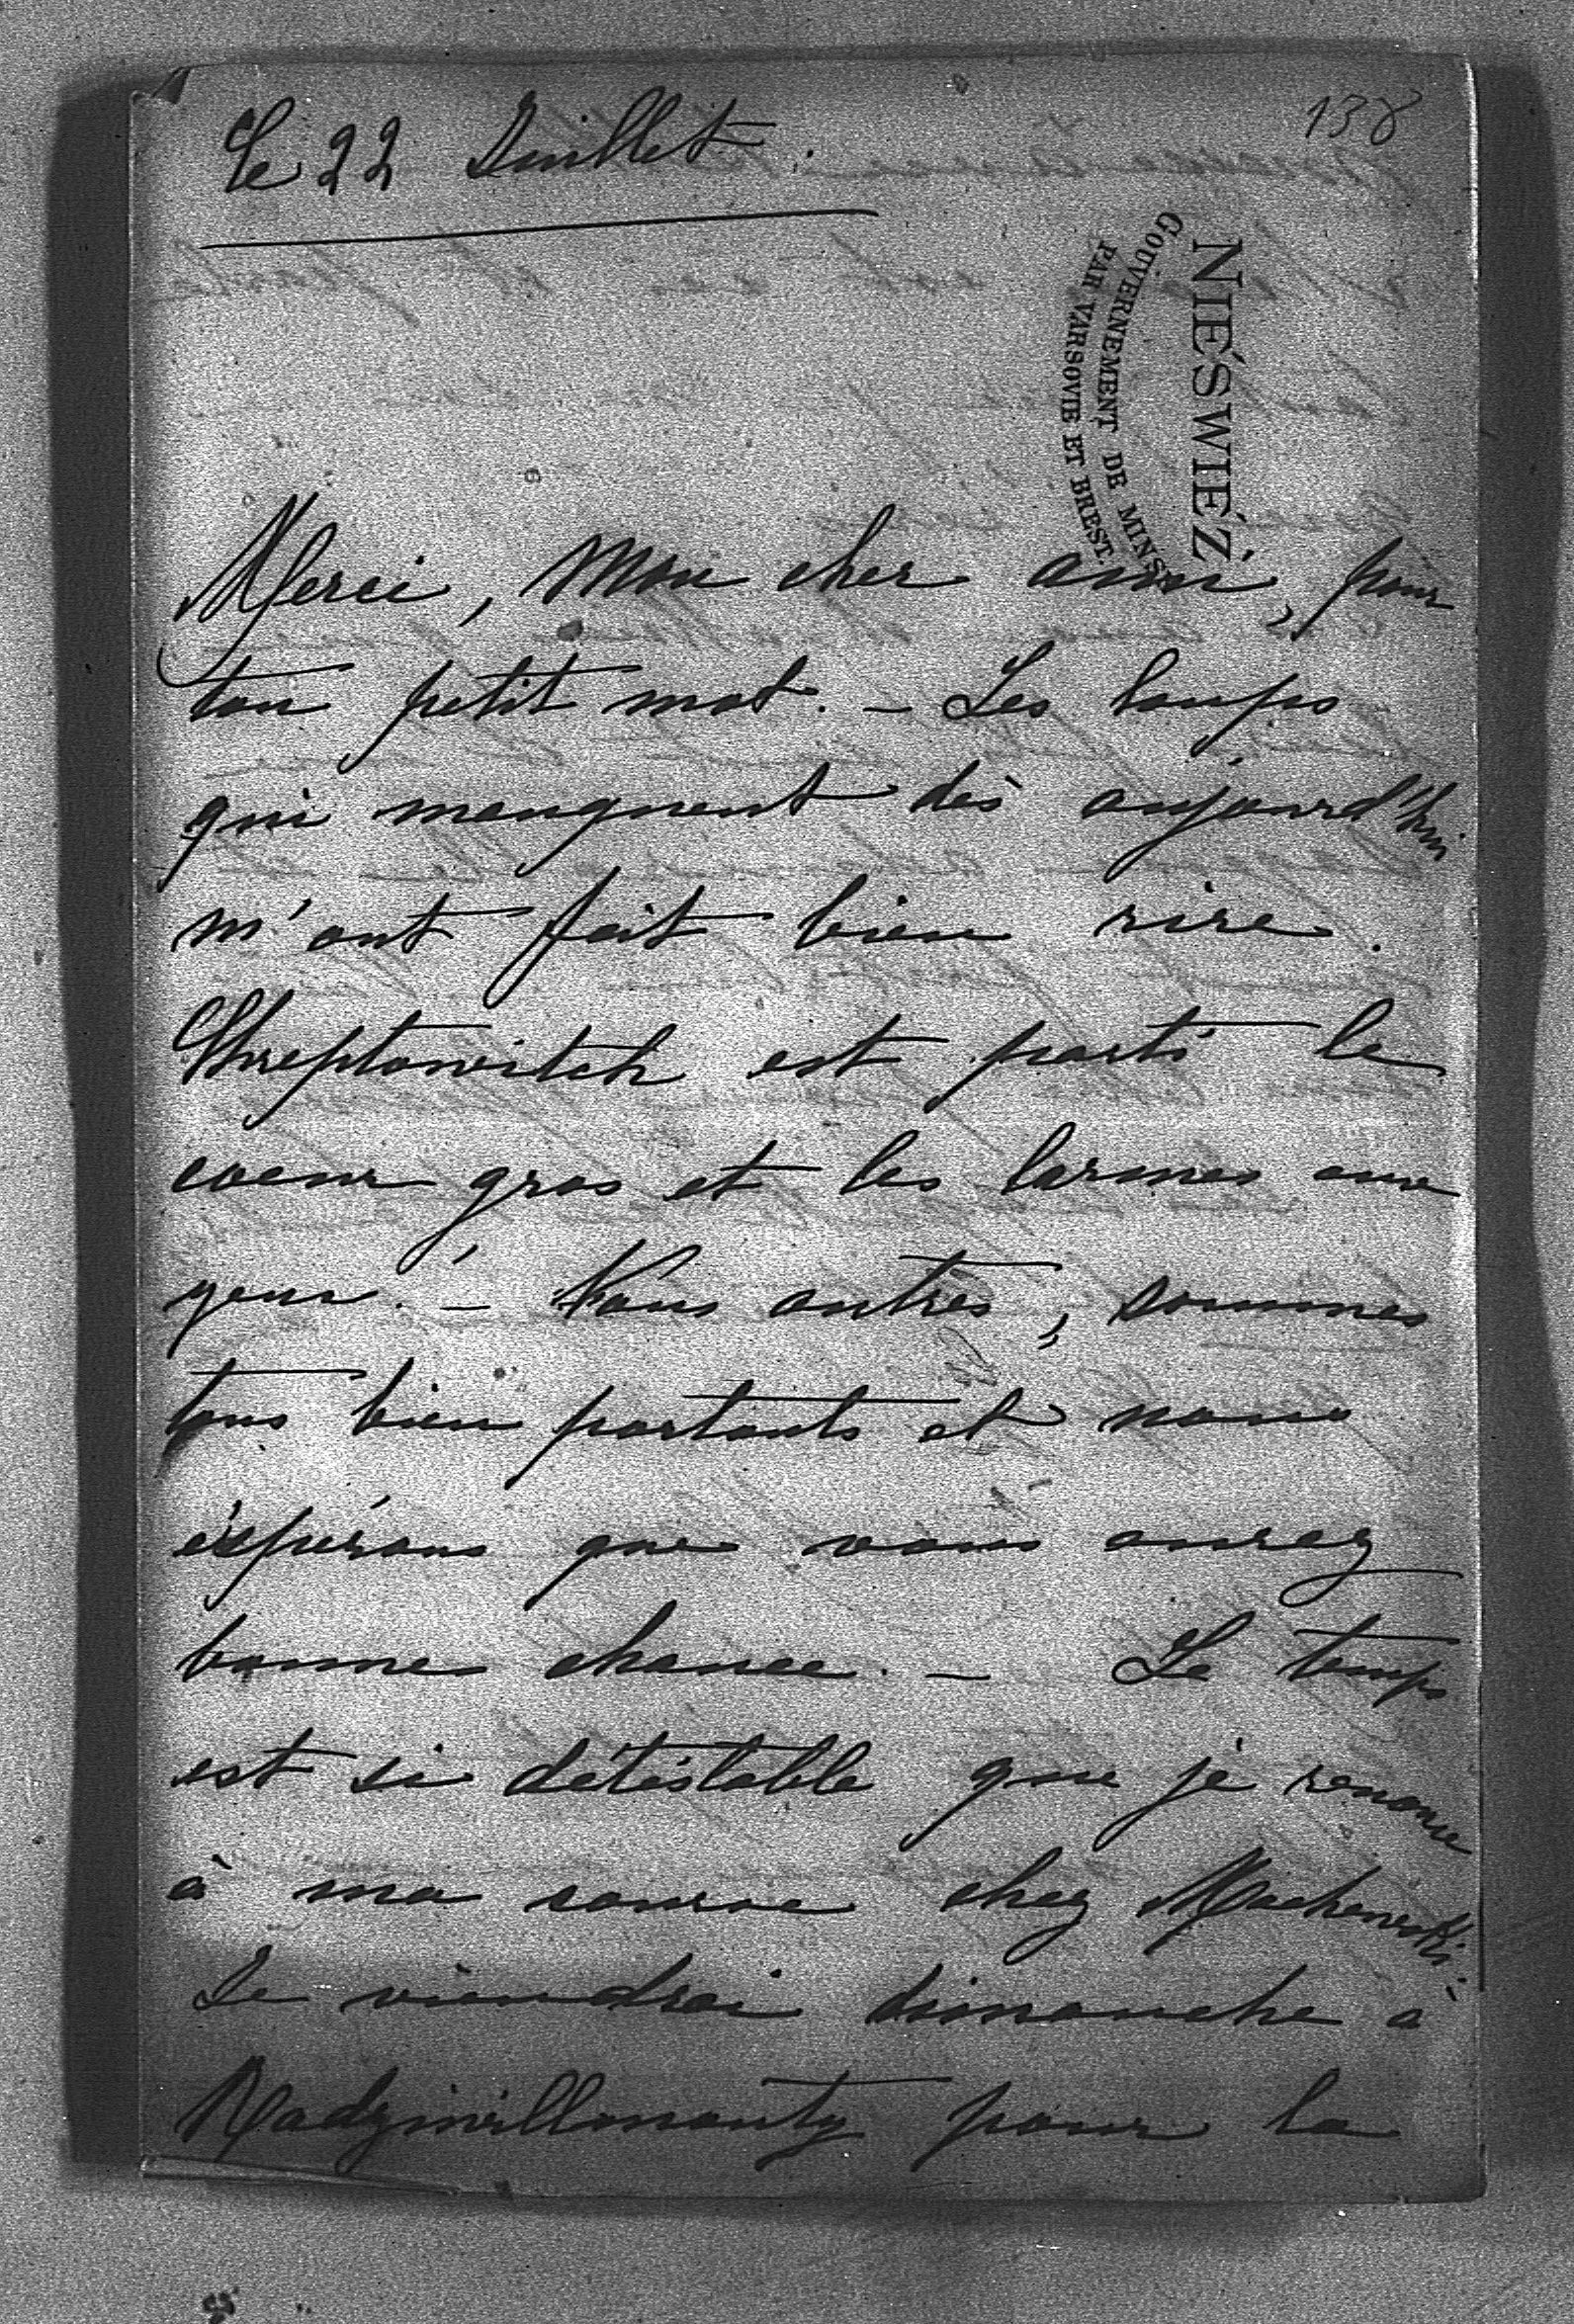 138
Le 22 Juillet.
NIEŚWIEŻ
GOUVERNEMENT DE MINSK
PAR VARSOVIE ET BREST.
Merci, Mon cher ami, pour
ton petit mot. – Les loups
qui manquent dès aujourd'hui
m'ont fait bien rire.
Chreptowitch est parti le
coeur gros et les larmes aux
yeux. – Nous autres, sommes
tous bien portants et nous
éspérons que vous aurez
bonne chance. – Le temps
est si détéstable que je renonce
à ma course chez
Je viendrai dimanche à
Radziwillmonty pour la